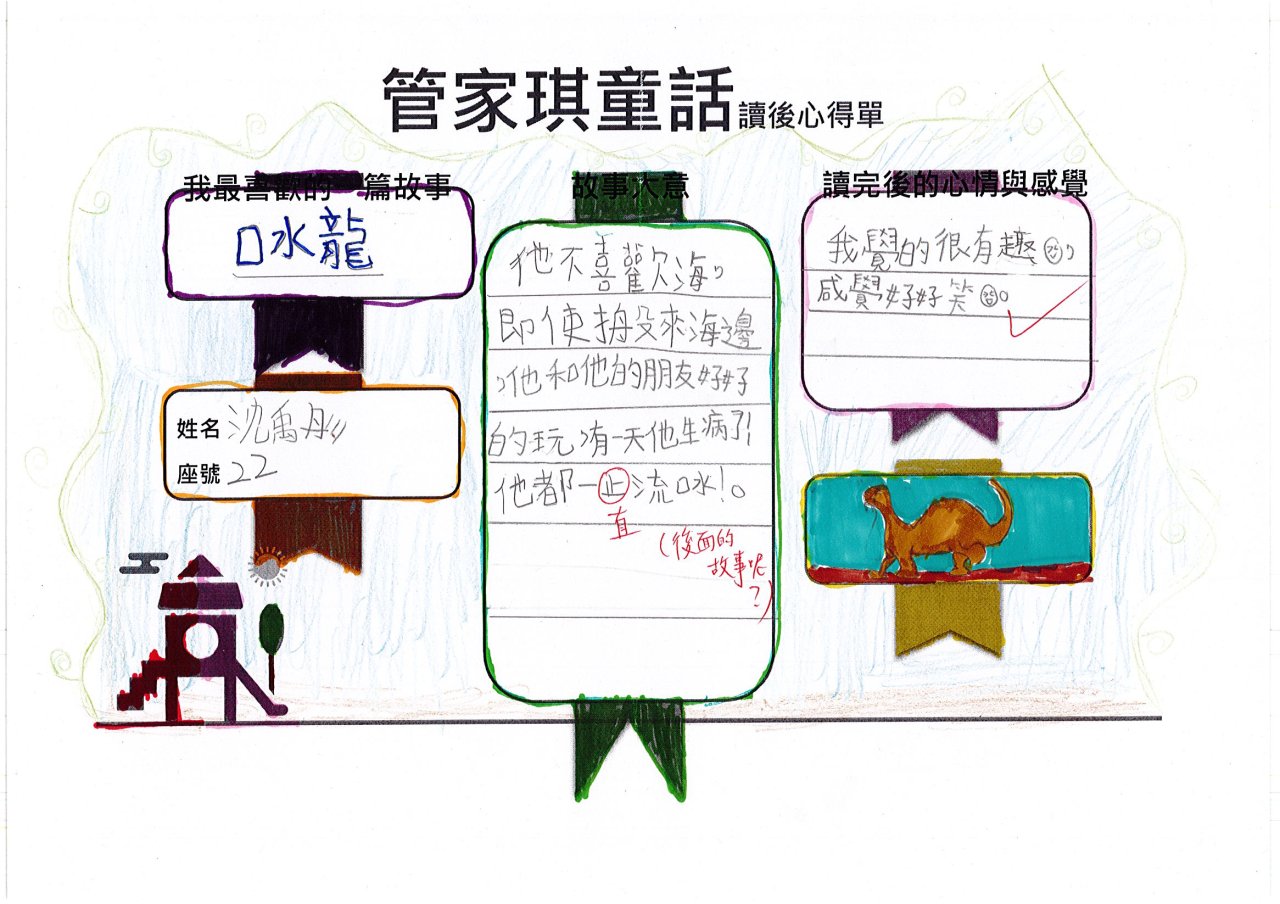 管家琪童話 讀後心得單
我最喜歡的一篇故事
口水龍
姓名 沈禹彤
座號 22
故事大意
他不喜歡海，
即使來海邊
，他和他的朋友好好
的玩，有一天他生病了!
他都一止流口水!。
直
(後面的
故事呢
?)
讀完後的心情與感覺
我覺的很有趣，
感覺好好笑。